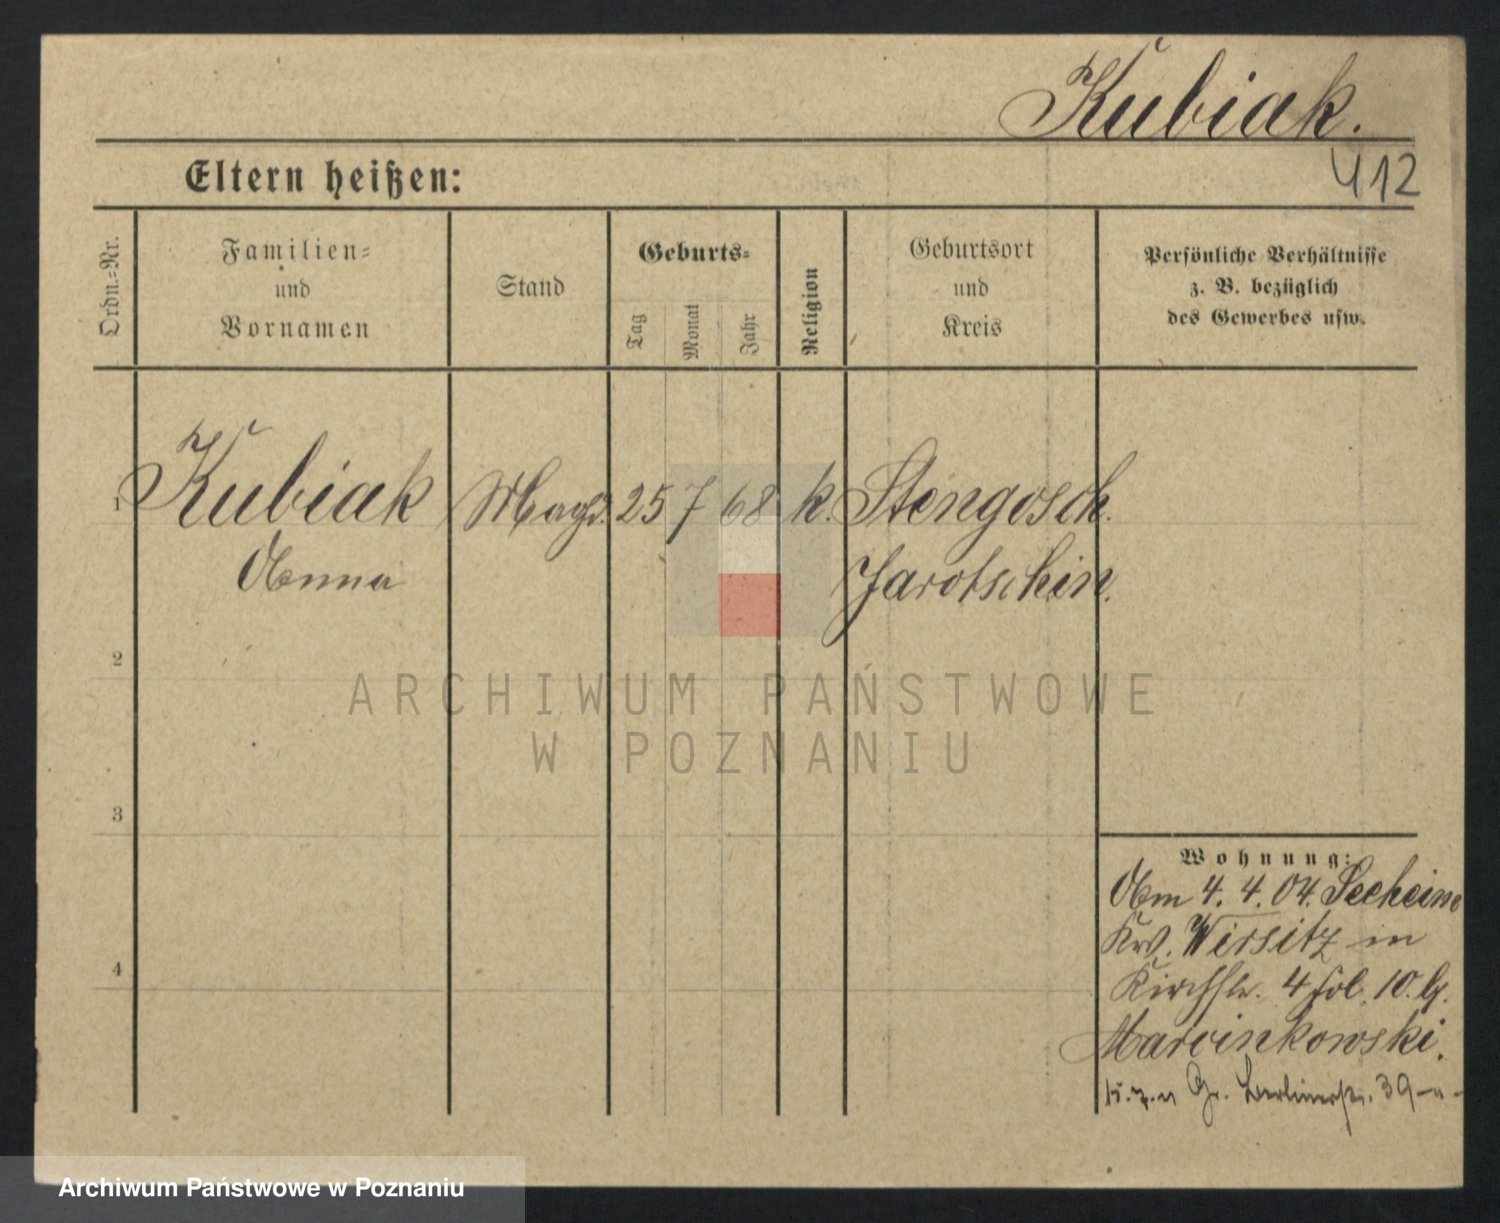 Kubiak.
412
Eltern heißen:
Ordn.-Nr.
Familien-
und
Vornamen
Stand
Geburts-
Tag
Monat
Jahr
Religion
Geburtsort
und
Kreis
Persönliche Verhältnisse
z. B. bezüglich
des Gewerbes usw.
1 Kubiak Magd. 25 7 68 k. Stengosch.
Anna Jarotschin.
2
3
4
Wohnung:
Am 4. 4. 04. Seeheim
Wirsitz in
Kirchstr. 4 fol. 10. b.
Marcinkowski.
Gr. Berlinerstr. 39
ARCHIWUM PAŃSTWOWE
W POZNANIU
Archiwum Państwowe w Poznaniu